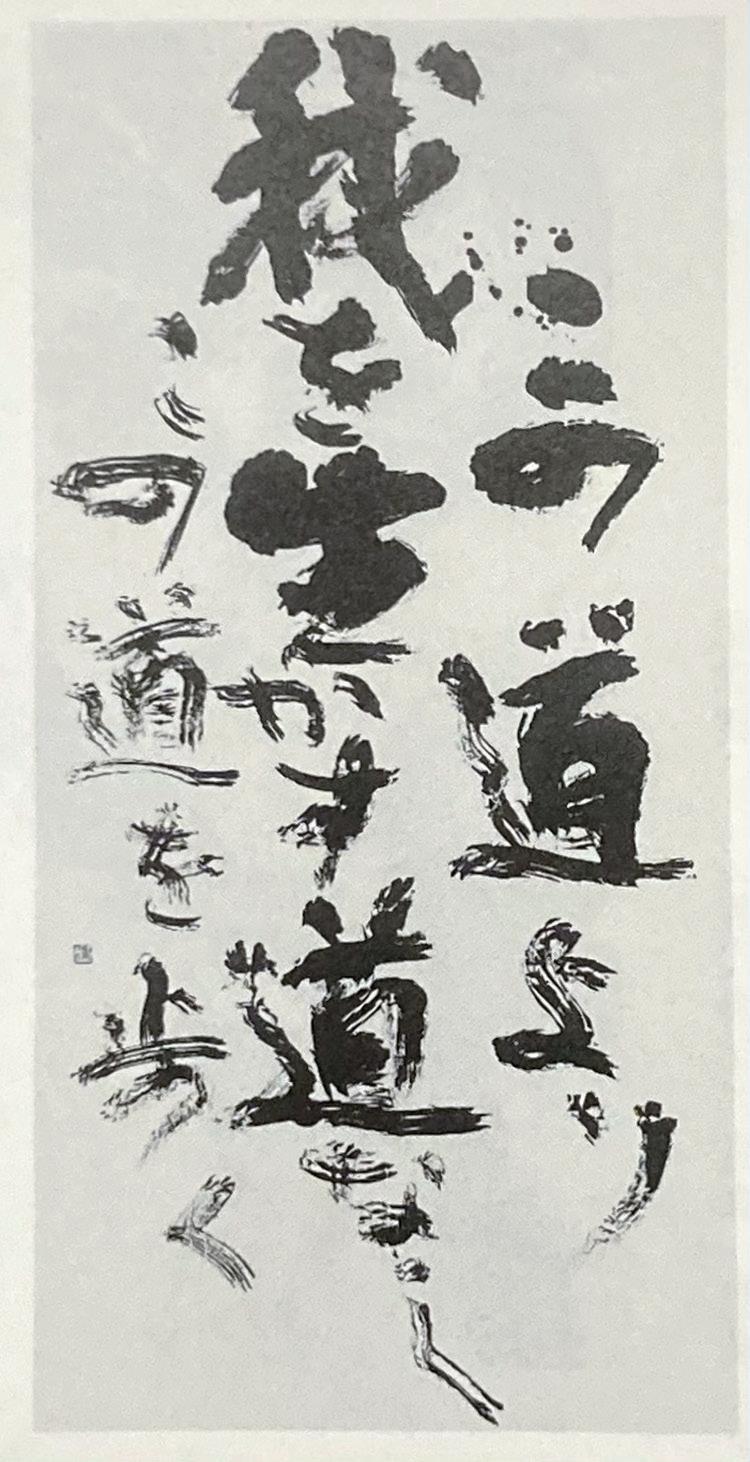 この道より
我を生かす道なし
この道を歩く